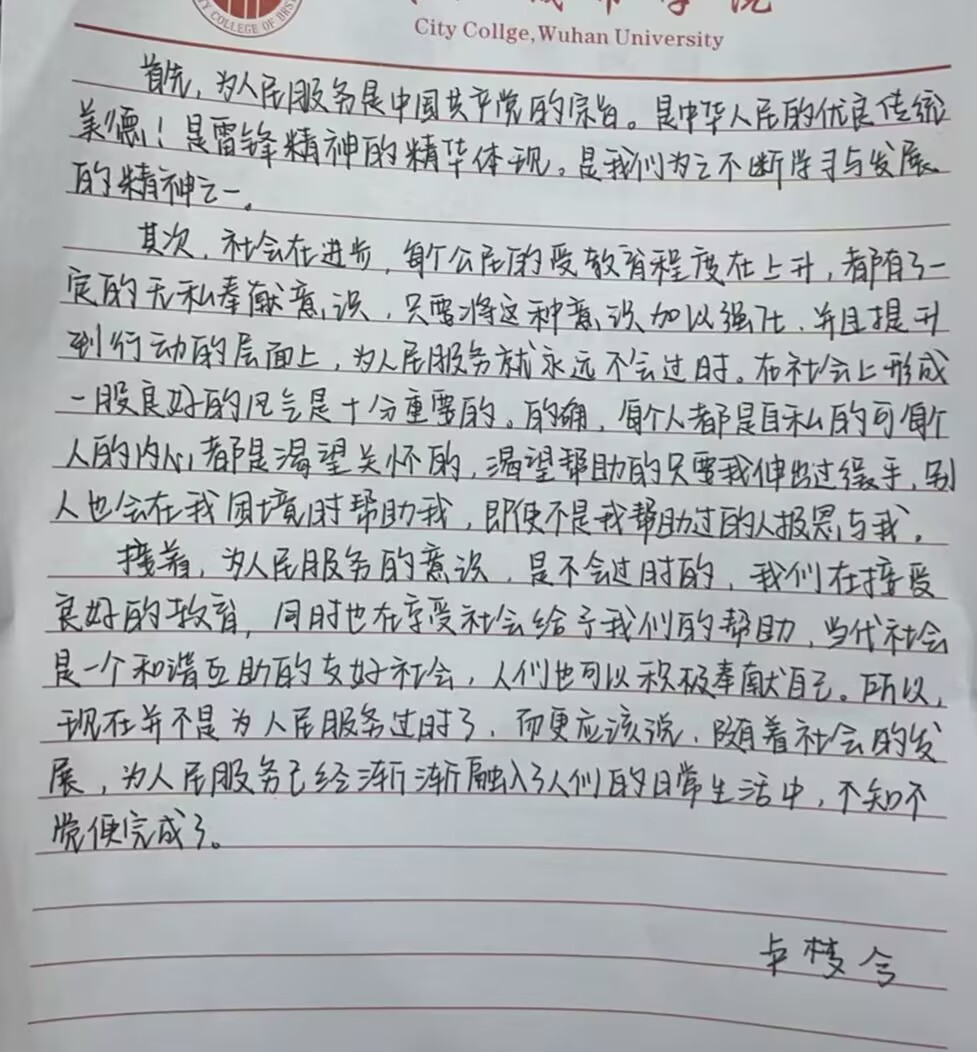 CITY COLLEGE OF
City Collge, Wuhan University
首先，为人民服务是中国共产党的宗旨。是中华人民的优良传统
美德！是雷锋精神的精华体现。是我们为之不断学习与发展
的精神之一。
其次，社会在进步，每个公民的受教育程度在上升，都有了一
定的无私奉献意识，只要将这种意识加以强化，并且提升
到行动的层面上，为人民服务就永远不会过时。在社会上形成
一股良好的风气是十分重要的。的确，每个人都是自私的可每个
人的内心都是渴望关怀的，渴望帮助的只要我伸出过援手，别
人也会在我困境时帮助我，即使不是我帮助过的人报恩与我。
接着，为人民服务的意识，是不会过时的，我们在接受
良好的教育，同时也在享受社会给予我们的帮助，当代社会
是一个和谐互助的友好社会，人们也可以积极奉献自己。所以，
现在并不是为人民服务过时了，而更应该说，随着社会的发
展，为人民服务已经渐渐融入了人们的日常生活中，不知不
觉便完成了。
卓梦令